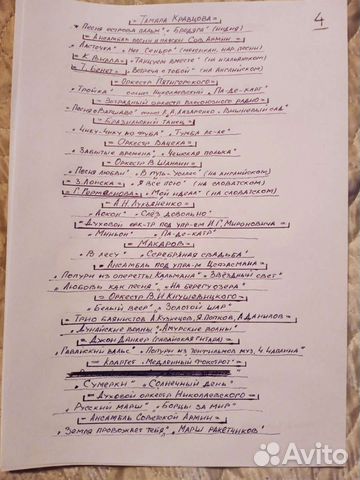 4
= Тамара Кравцова =
„Песня острова пальм" „Бродяга" (индия)
= Ансамбль песни и пляски Сов. Армии =
„Ласточка" „Нет Сеньор" (мексикан. нар. песни)
„Танцуем вместе" (на итальянском)
= Т. Бенет = „Встреча с тобой" (на английском)
= Оркестр Пятигорского =
„Тройка" „Па-де-карт"
= Эстрадный оркестр Всесоюзного радио =
„Вишнёвый сад"
= Бразильский танец =
„Чику-чику из фуба" „Тумба ле-ле"
= Оркестр Вацека =
„Забытые времена" „Чешская полька"
= Оркестр В. Шаланина =
„Песня любви" „В путь" (на английском)
= З. Лонска = „Я всё пою" (на словатском)
„Мой идеал" (на словатском)
= А.Н. Лукьяненко =
„Локон" „Слёз довольно"
= Духовой орк-тр под упр-ем И.Г. Мироновича =
„Миньон" „Па-де-катр"
= Макаров =
„В лесу" „Серебряная свадьба"
= Ансамбль под упр-м Цфасмана =
„Попури из оперетты Кальмана" „Звёздный свет"
„Любовь как песня" „На берегу озера"
= Оркестр В.Н. Кнушевицкого =
„Белый веер" „Золотой шар"
= Трио баянистов А. Кузнецов, Я. Попков, А. Данилов =
„Дунайские волны" „Амурские волны"
= Джон Данкер (гавайская гитара) =
„Гавайский вальс" „Попури из
= Квартет „Медленный фокстрот" =
„Сумерки" „Солнечный день"
= Духовой оркестр Николаевского =
„Русский марш" „Борцы за мир"
= Ансамбль Советской Армии =
„Земля провожает тебя" „Марш ракетчиков"
Avito